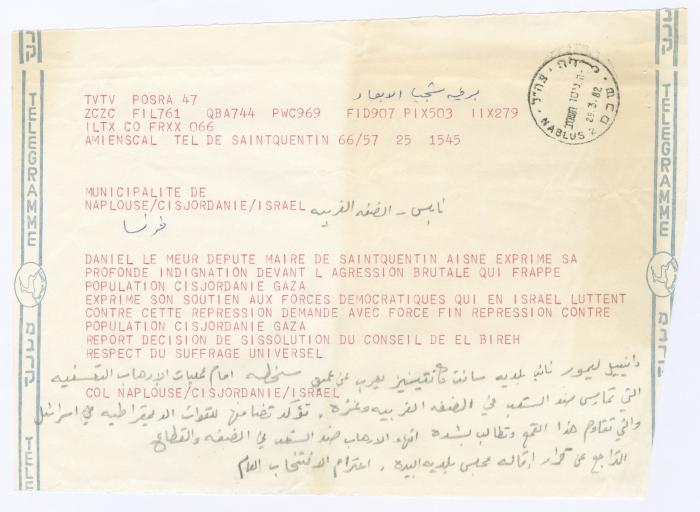 TVTV POSRA 47
ZCZC FIL761 QBA744 PWC969 FID907 PIX503 IIX279
ILTX CO FRXX 066
AMIENSCAL TEL DE SAINTQUENTIN 66/57 25 1545
NABLUS
29.3.82
MUNICIPALITE DE
NAPLOUSE/CISJORDANIE/ISRAEL نابلس - الضفه الغربيه
فرنسا
DANIEL LE MEUR DEPUTE MAIRE DE SAINTQUENTIN AISNE EXPRIME SA
PROFONDE INDIGNATION DEVANT L AGRESSION BRUTALE QUI FRAPPE
POPULATION CISJORDANIE GAZA
EXPRIME SON SOUTIEN AUX FORCES DEMOCRATIQUES QUI EN ISRAEL LUTTENT
CONTRE CETTE REPRESSION DEMANDE AVEC FORCE FIN REPRESSION CONTRE
POPULATION CISJORDANIE GAZA
REPORT DECISION DE SISSOLUTION DU CONSEIL DE EL BIREH
RESPECT DU SUFFRAGE UNIVERSEL
دانييل ليمور نائب بلدية سانت يعرب عن عميق سخطه امام عمليات الارهاب التعسفيه
COL NAPLOUSE/CISJORDANIE/ISRAEL
التي تمارس ضد الشعب في الضفه الغربيه وغزة، تؤكد تضامنها للقوات الديمقراطيه في اسرائيل
والتي تقاوم هذا القمع وتطالب بشدة انهاء الارهاب ضد الشعب في الضفه والقطاع
التراجع عن قرار إقاله مجلس بلديه البيره، احترام الانتخاب العام
TELEGRAMME
מברק
TELEGRAMME
מברק